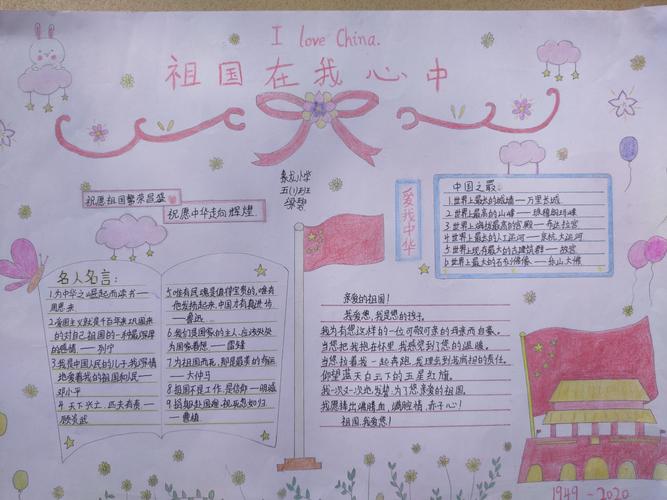 I love China.
祖国在我心中
秦龙小学
五(1)班
梁碧
祝愿祖国繁荣昌盛
祝愿中华走向辉煌.
爱我中华
中国之最:
1.世界上最长的城墙——万里长城
2.世界上最高的山峰——珠穆朗玛峰
3.世界上海拔最高的宫殿——布达拉宫
4.世界上最长的人工运河——京杭大运河
5.世界上现存最大的古建筑群——故宫
6.世界上最大的石刻佛像——乐山大佛
名人名言:
1.为中华之崛起而读书——
周恩来
2.爱国主义就是千百年来巩固来
的对自己祖国的一种最深厚
的感情.——列宁
3.我是中国人民的儿子,我深情
地爱着我的祖国和人民——
邓小平
4.天下兴亡,匹夫有责——
顾炎武
5.唯有民魂是值得宝贵的,唯有
他发扬起来,中国才有真进步
——鲁迅
6.我们是国家的主人,应该处处
为国家着想——雷锋
7.为祖国而死,那是最美的命运
——大仲马
8.祖国不是工作,是信仰——明誠
9.捐躯赴国难,视死忽如归
——曹植
亲爱的祖国!
我爱您,我是您的孩子,
我为有您这样的一位可敬可亲的母亲而自豪。
当您把我抱在怀里,我感受到了您的温暖,
当您拉着我一起奔跑,我理解到我肩担的责任。
仰望蓝天白云下的五星红旗,
我一次又一次地发誓,为了您亲爱的祖国,
我愿捧出满腔血,满腔情,赤子心!
祖国,我爱您!
1949-2020